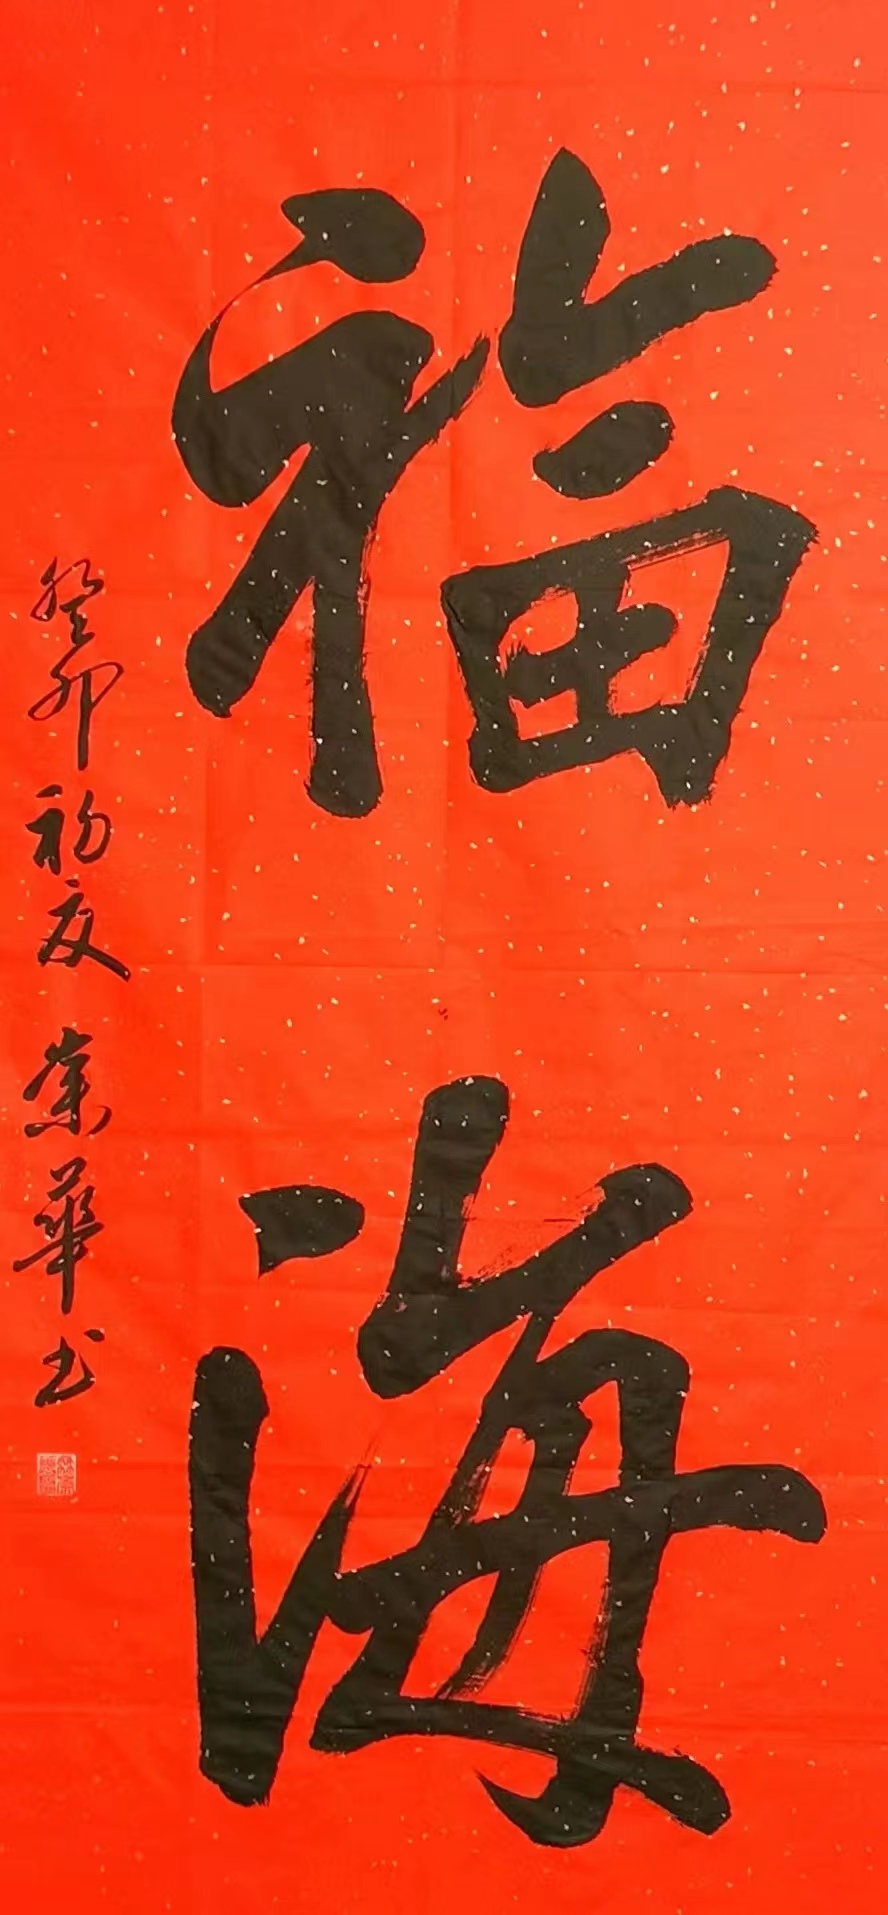 福海
癸卯初夏 崇華书